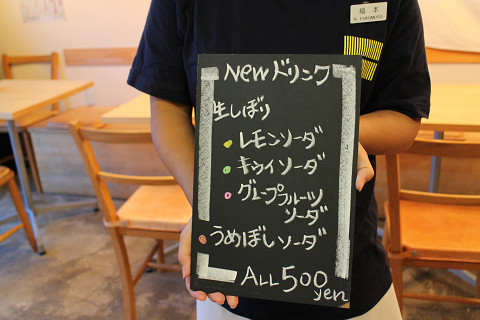 福本
K. FUKUMOTO
Newドリンク
生しぼり
レモンソーダ
キウイソーダ
グレープフルーツ
ソーダ
うめぼしソーダ
ALL 500
yen